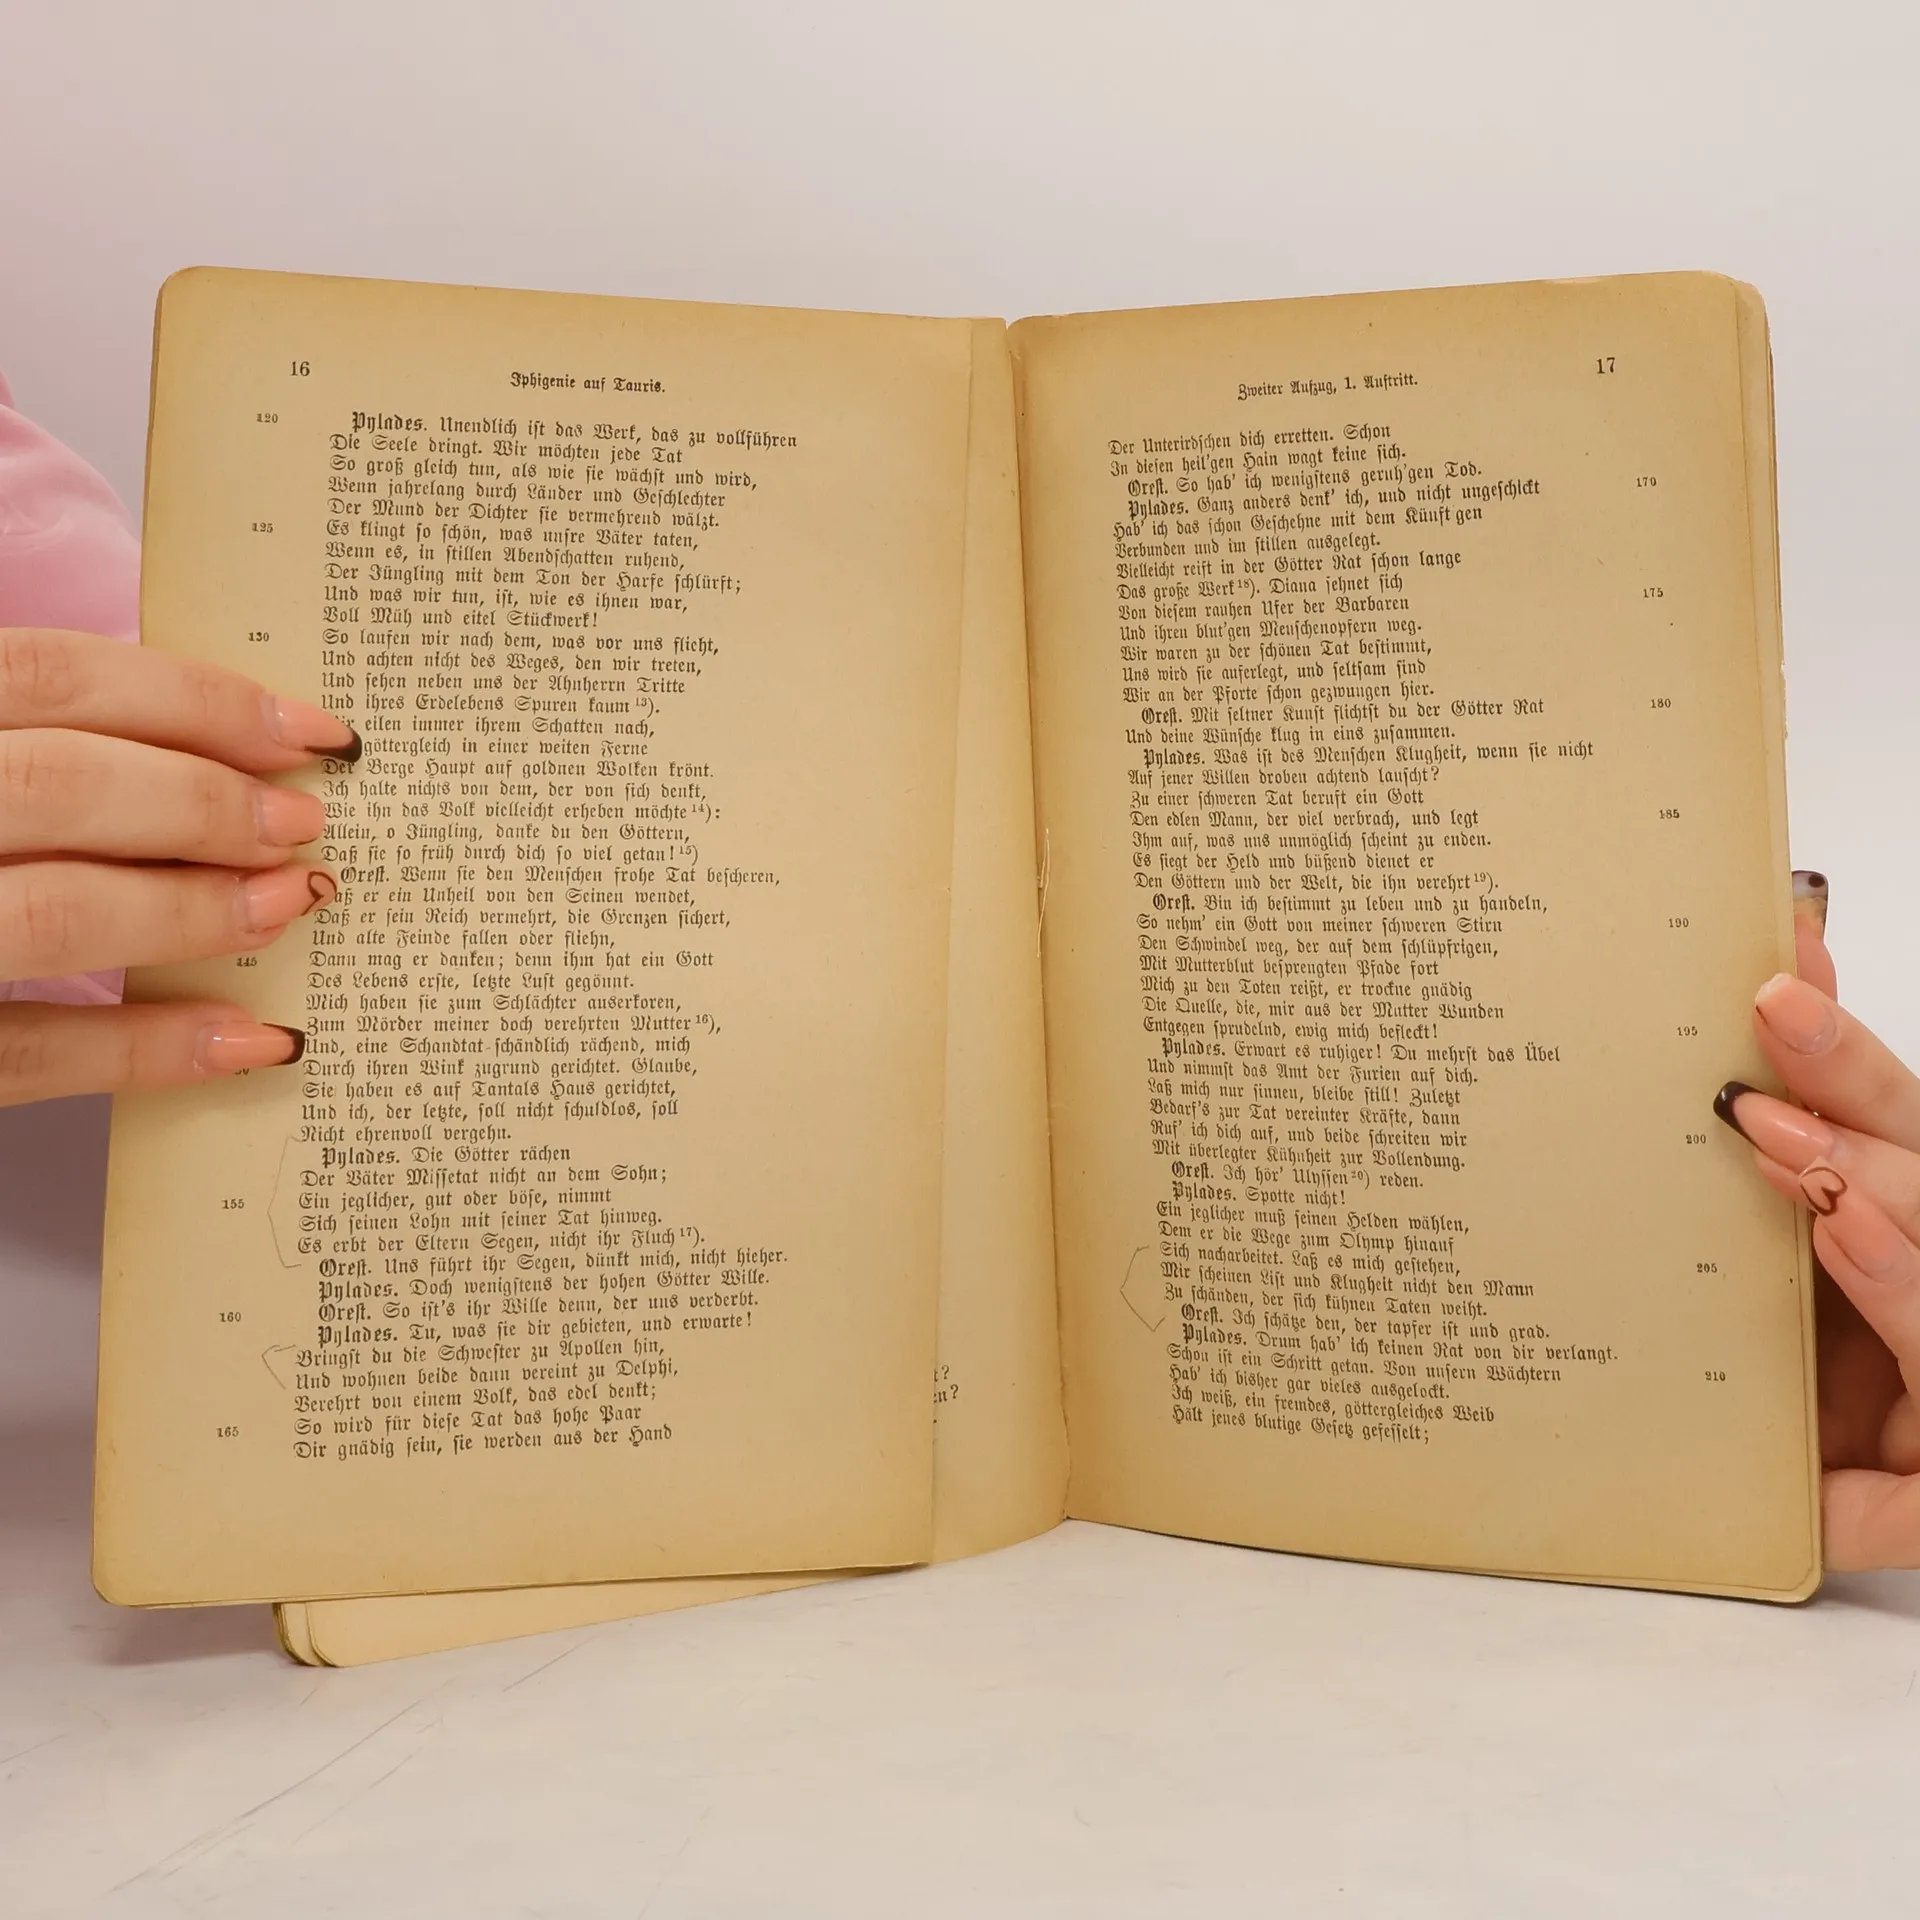 16
Iphigenie auf Tauris.
120
Pylades. Unendlich ist das Werk, das zu vollführen
Die Seele dringt. Wir möchten jede Tat
So groß gleich tun, als wie sie wächst und wird,
Wenn jahrelang durch Länder und Geschlechter
Der Mund der Dichter sie vermehrend wälzt.
125
Es klingt so schön, was unsre Väter taten,
Wenn es, in stillen Abendschatten ruhend,
Der Jüngling mit dem Ton der Harfe schlürft;
Und was wir tun, ist, wie es ihnen war,
Voll Müh und eitel Stückwerk!
130
So laufen wir nach dem, was vor uns flieht,
Und achten nicht des Weges, den wir treten,
Und sehen neben uns der Ahnherrn Tritte
Und ihres Erdelebens Spuren kaum 13).
eilen immer ihrem Schatten nach,
göttergleich in einer weiten Ferne
Der Berge Haupt auf goldnen Wolken krönt.
Ich halte nichts von dem, der von sich denkt,
Wie ihn das Volk vielleicht erheben möchte 14):
Allein, o Jüngling, danke du den Göttern,
Daß sie so früh durch dich so viel getan! 15)
Orest. Wenn sie den Menschen frohe Tat bescheren,
Daß er ein Unheil von den Seinen wendet,
Daß er sein Reich vermehrt, die Grenzen sichert,
Und alte Feinde fallen oder fliehn,
145
Dann mag er danken; denn ihm hat ein Gott
Des Lebens erste, letzte Lust gegönnt.
Mich haben sie zum Schlächter auserkoren,
Zum Mörder meiner doch verehrten Mutter 16),
Und, eine Schandtat schändlich rächend, mich
Durch ihren Wink zugrund gerichtet. Glaube,
Sie haben es auf Tantals Haus gerichtet,
Und ich, der letzte, soll nicht schuldlos, soll
Nicht ehrenvoll vergehn.
Pylades. Die Götter rächen
Der Väter Missetat nicht an dem Sohn;
155
Ein jeglicher, gut oder böse, nimmt
Sich seinen Lohn mit seiner Tat hinweg.
Es erbt der Eltern Segen, nicht ihr Fluch 17).
Orest. Uns führt ihr Segen, dünkt mich, nicht hieher.
Pylades. Doch wenigstens der hohen Götter Wille.
160
Orest. So ist's ihr Wille denn, der uns verderbt.
Pylades. Tu, was sie dir gebieten, und erwarte!
Bringst du die Schwester zu Apollen hin,
Und wohnen beide dann vereint zu Delphi,
Verehrt von einem Volk, das edel denkt;
165
So wird für diese Tat das hohe Paar
Dir gnädig sein, sie werden aus der Hand
17
Zweiter Aufzug, 1. Auftritt.
Der Unterirdschen dich erretten. Schon
In diesen heil'gen Hain wagt keine sich.
Orest. So hab' ich wenigstens geruh'gen Tod.
170
Pylades. Ganz anders denk' ich, und nicht ungeschickt
Hab' ich das schon Geschehne mit dem Künft'gen
Verbunden und im stillen ausgelegt.
Vielleicht reift in der Götter Rat schon lange
Das große Werk 18). Diana sehnet sich
175
Von diesem rauhen Ufer der Barbaren
Und ihren blut'gen Menschenopfern weg.
Wir waren zu der schönen Tat bestimmt,
Uns wird sie auferlegt, und seltsam sind
Wir an der Pforte schon gezwungen hier.
180
Orest. Mit seltner Kunst flichtst du der Götter Rat
Und deine Wünsche klug in eins zusammen.
Pylades. Was ist des Menschen Klugheit, wenn sie nicht
Auf jener Willen droben achtend lauscht?
Zu einer schweren Tat beruft ein Gott
185
Den edlen Mann, der viel verbrach, und legt
Ihm auf, was uns unmöglich scheint zu enden.
Es siegt der Held und büßend dienet er
Den Göttern und der Welt, die ihn verehrt 19).
Orest. Bin ich bestimmt zu leben und zu handeln,
190
So nehm' ein Gott von meiner schweren Stirn
Den Schwindel weg, der auf dem schlüpfrigen,
Mit Mutterblut besprengten Pfade fort
Mich zu den Toten reißt, er trockne gnädig
Die Quelle, die, mir aus der Mutter Wunden
195
Entgegen sprudelnd, ewig mich befleckt!
Pylades. Erwart es ruhiger! Du mehrst das Übel
Und nimmst das Amt der Furien auf dich.
Laß mich nur sinnen, bleibe still! Zuletzt
Bedarf's zur Tat vereinter Kräfte, dann
200
Ruf' ich dich auf, und beide schreiten wir
Mit überlegter Kühnheit zur Vollendung.
Orest. Ich hör' Ulyssen 20) reden.
Pylades. Spotte nicht!
Ein jeglicher muß seinen Helden wählen,
Dem er die Wege zum Olymp hinauf
205
Sich nacharbeitet. Laß es mich gestehen,
Mir scheinen List und Klugheit nicht den Mann
Zu schänden, der sich kühnen Taten weiht.
Orest. Ich schätze den, der tapfer ist und grad.
Pylades. Drum hab' ich keinen Rat von dir verlangt.
210
Schon ist ein Schritt getan. Von unsern Wächtern
Hab' ich bisher gar vieles ausgelockt.
Ich weiß, ein fremdes, göttergleiches Weib
Hält jenes blutige Gesetz gefesselt;